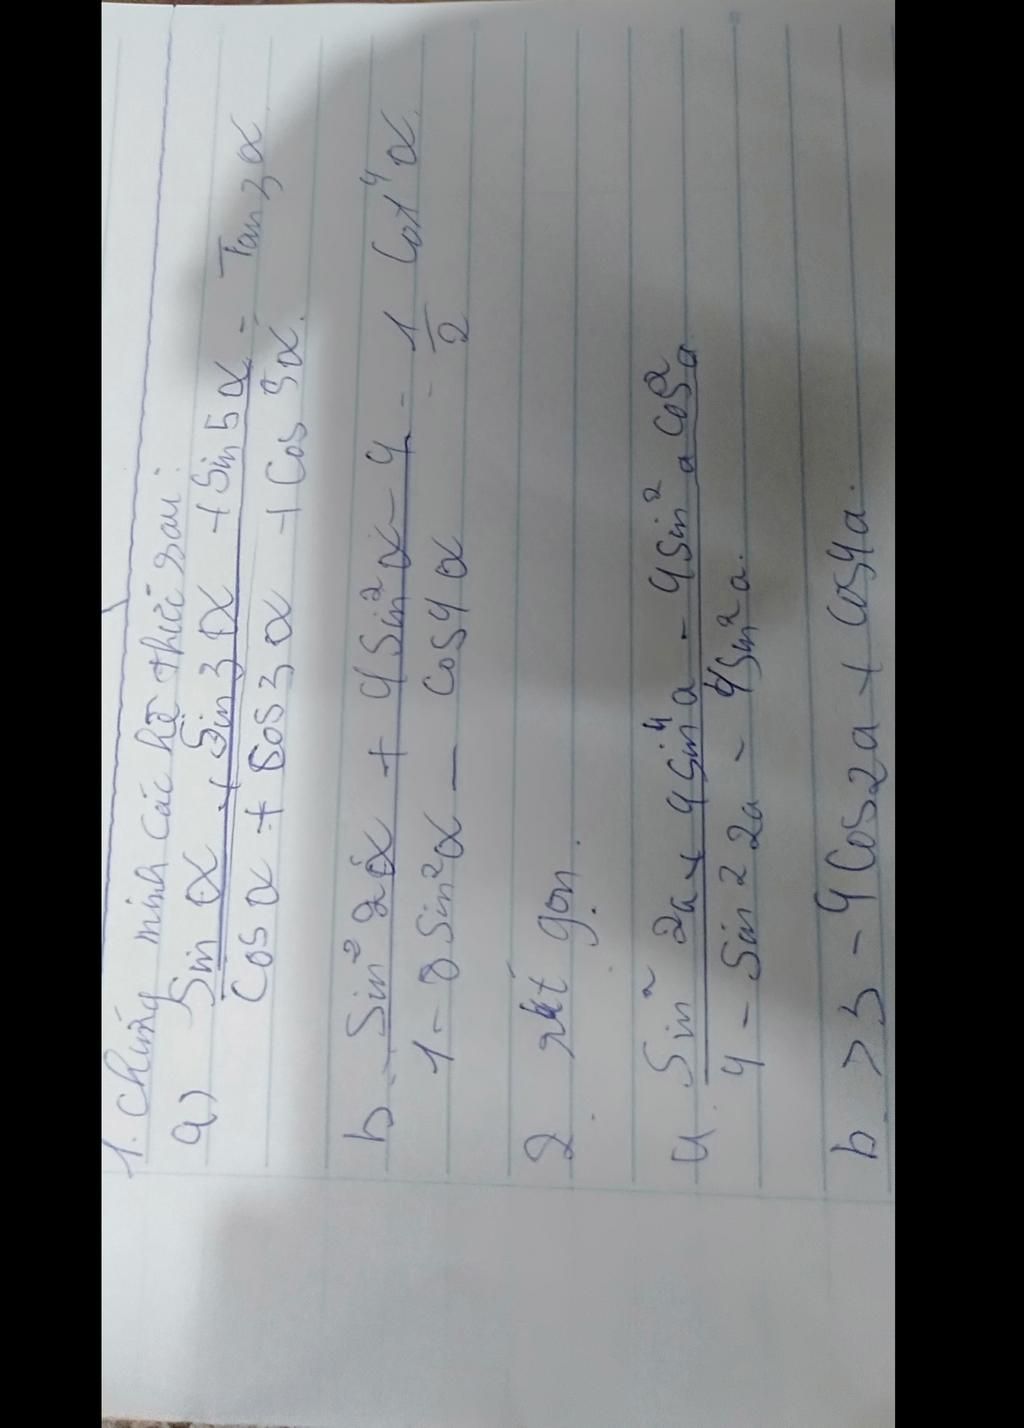 1. Chứng minh các hệ thức sau:
a) Sin α + Sin 3α + Sin 5α = Tan 3α
Cos α + Cos 3α + Cos 5α.
b. Sin² 2α + 4 Sin² α - 4 = 1 Cot⁴ α.
1 - 8 Sin² α - Cos 4α 2
2. rút gọn.
a. Sin² 2a + 4 Sin⁴ a - 4 Sin² a cos² a
4 - Sin² 2a - 4 Sin² a.
b > 3 - 4 Cos 2a + Cos 4a.